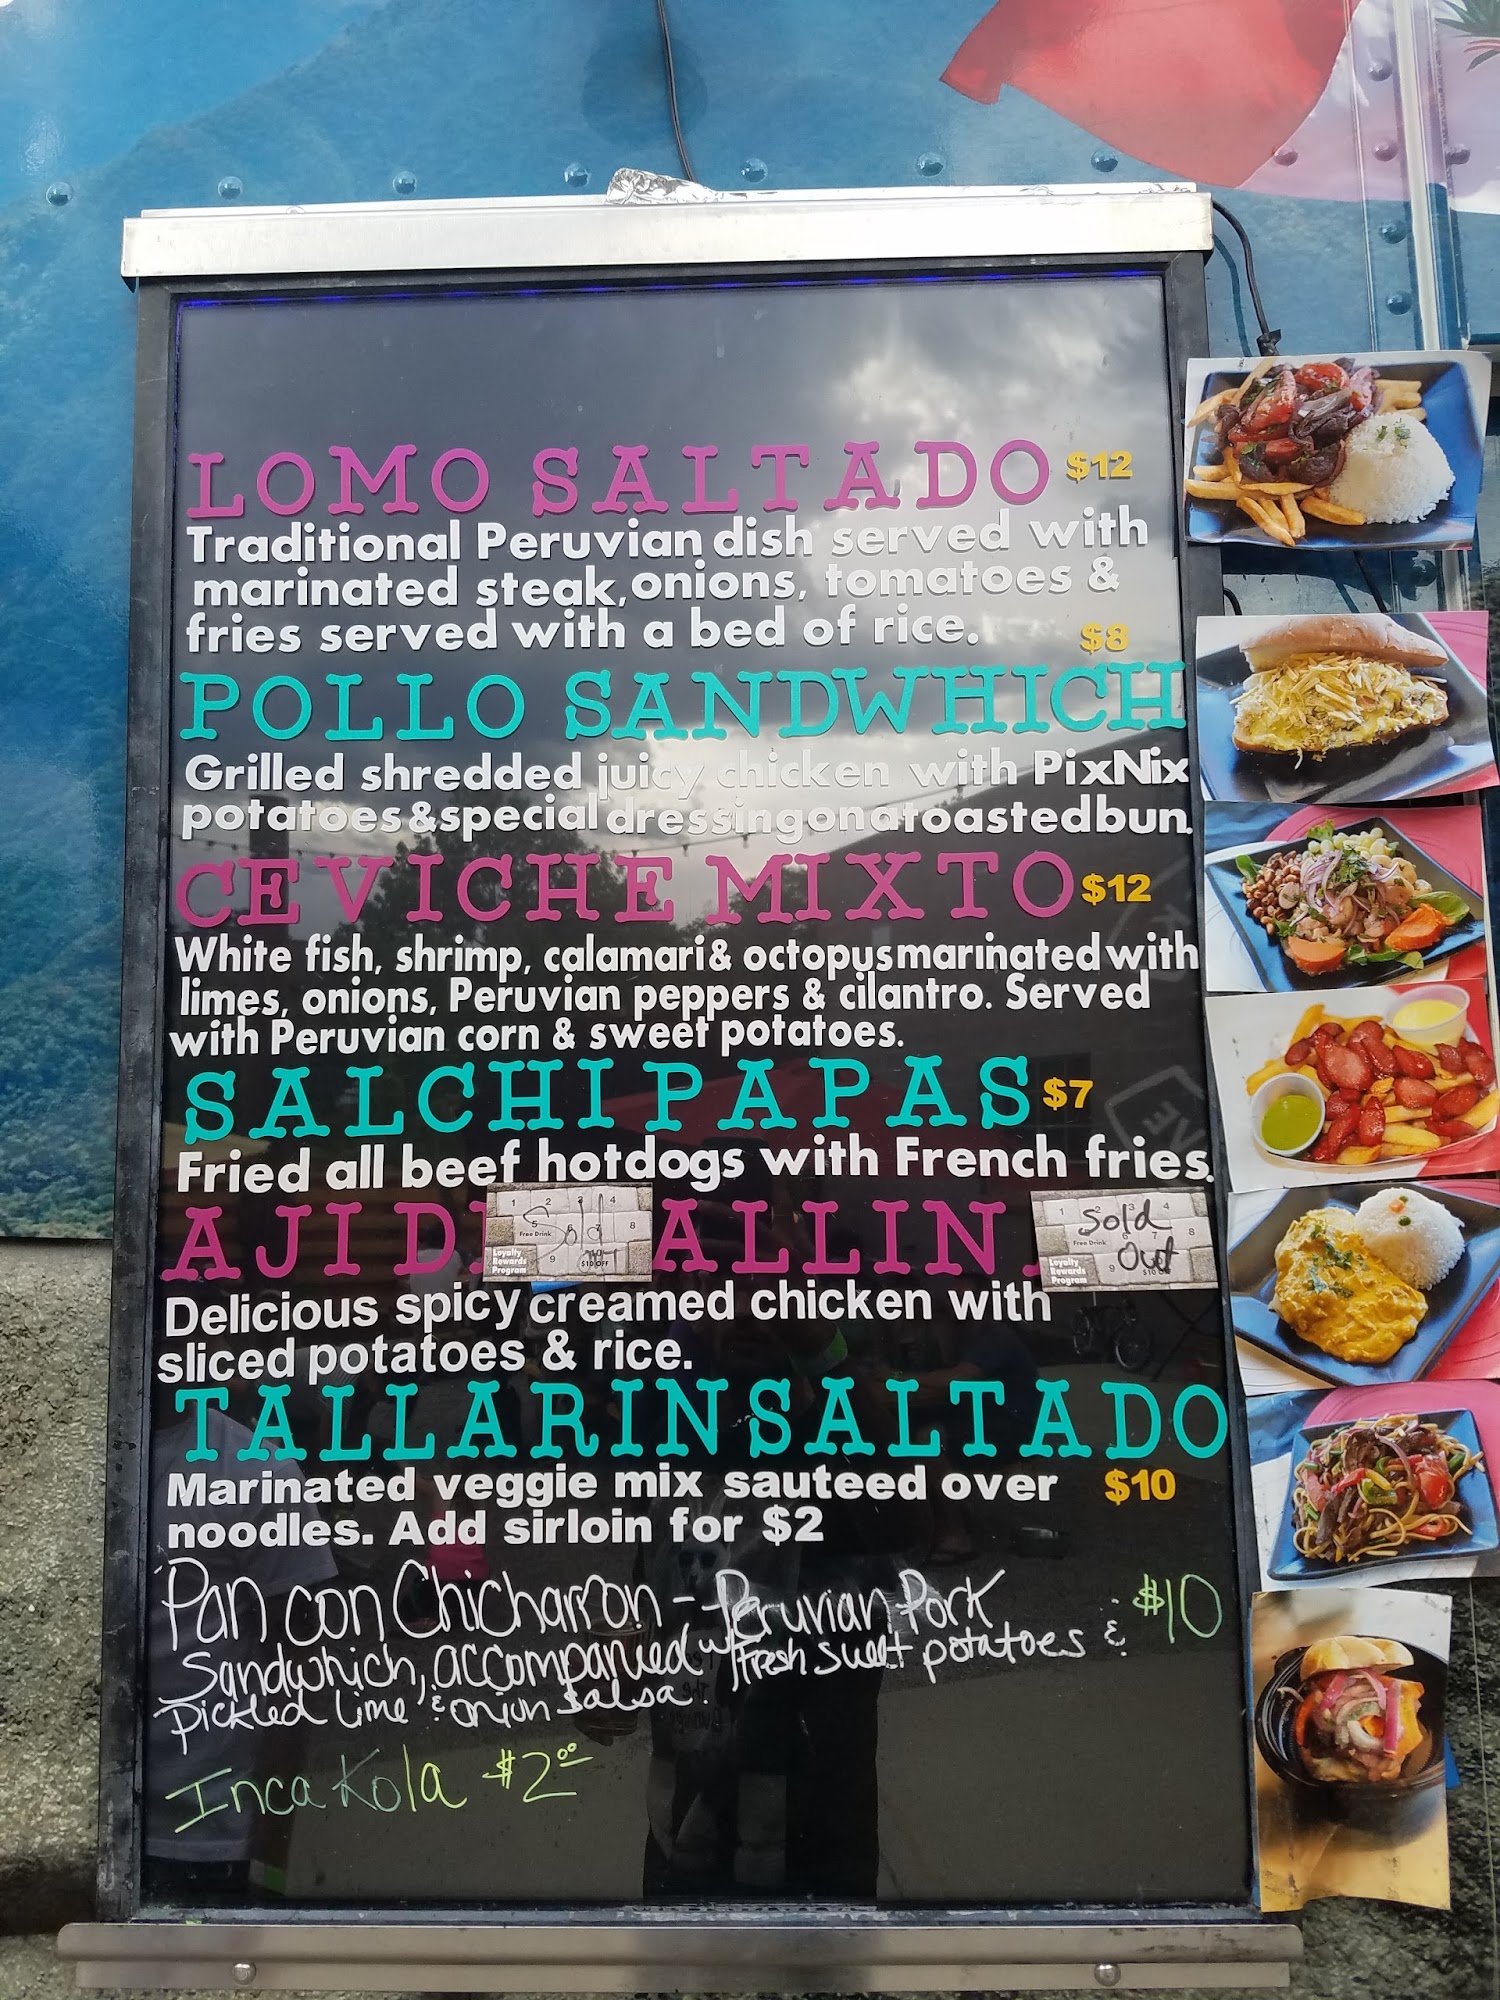 LOMO SALTADO $12
Traditional Peruvian dish served with
marinated steak, onions, tomatoes &
fries served with a bed of rice.
$8
POLLO SANDWHICH
Grilled shredded juicy chicken with PixNix
potatoes & special dressing on a toasted bun.
CEVICHE MIXTO $12
White fish, shrimp, calamari & octopus marinated with
limes, onions, Peruvian peppers & cilantro. Served
with Peruvian corn & sweet potatoes.
SALCHIPAPAS $7
Fried all beef hotdogs with French fries.
AJI D ALLIN
Sold out
Free Drink
Loyalty
Rewards
Program
$10 OFF
Sold
Out
Free Drink
Loyalty
Rewards
Program
Delicious spicy creamed chicken with
sliced potatoes & rice.
TALLARIN SALTADO
Marinated veggie mix sauteed over $10
noodles. Add sirloin for $2
Pan con Chicharron - Peruvian Pork $10
Sandwhich, accompanied w/ fresh sweet potatoes &
pickled lime & onion salsa.
Inca Kola $2.00